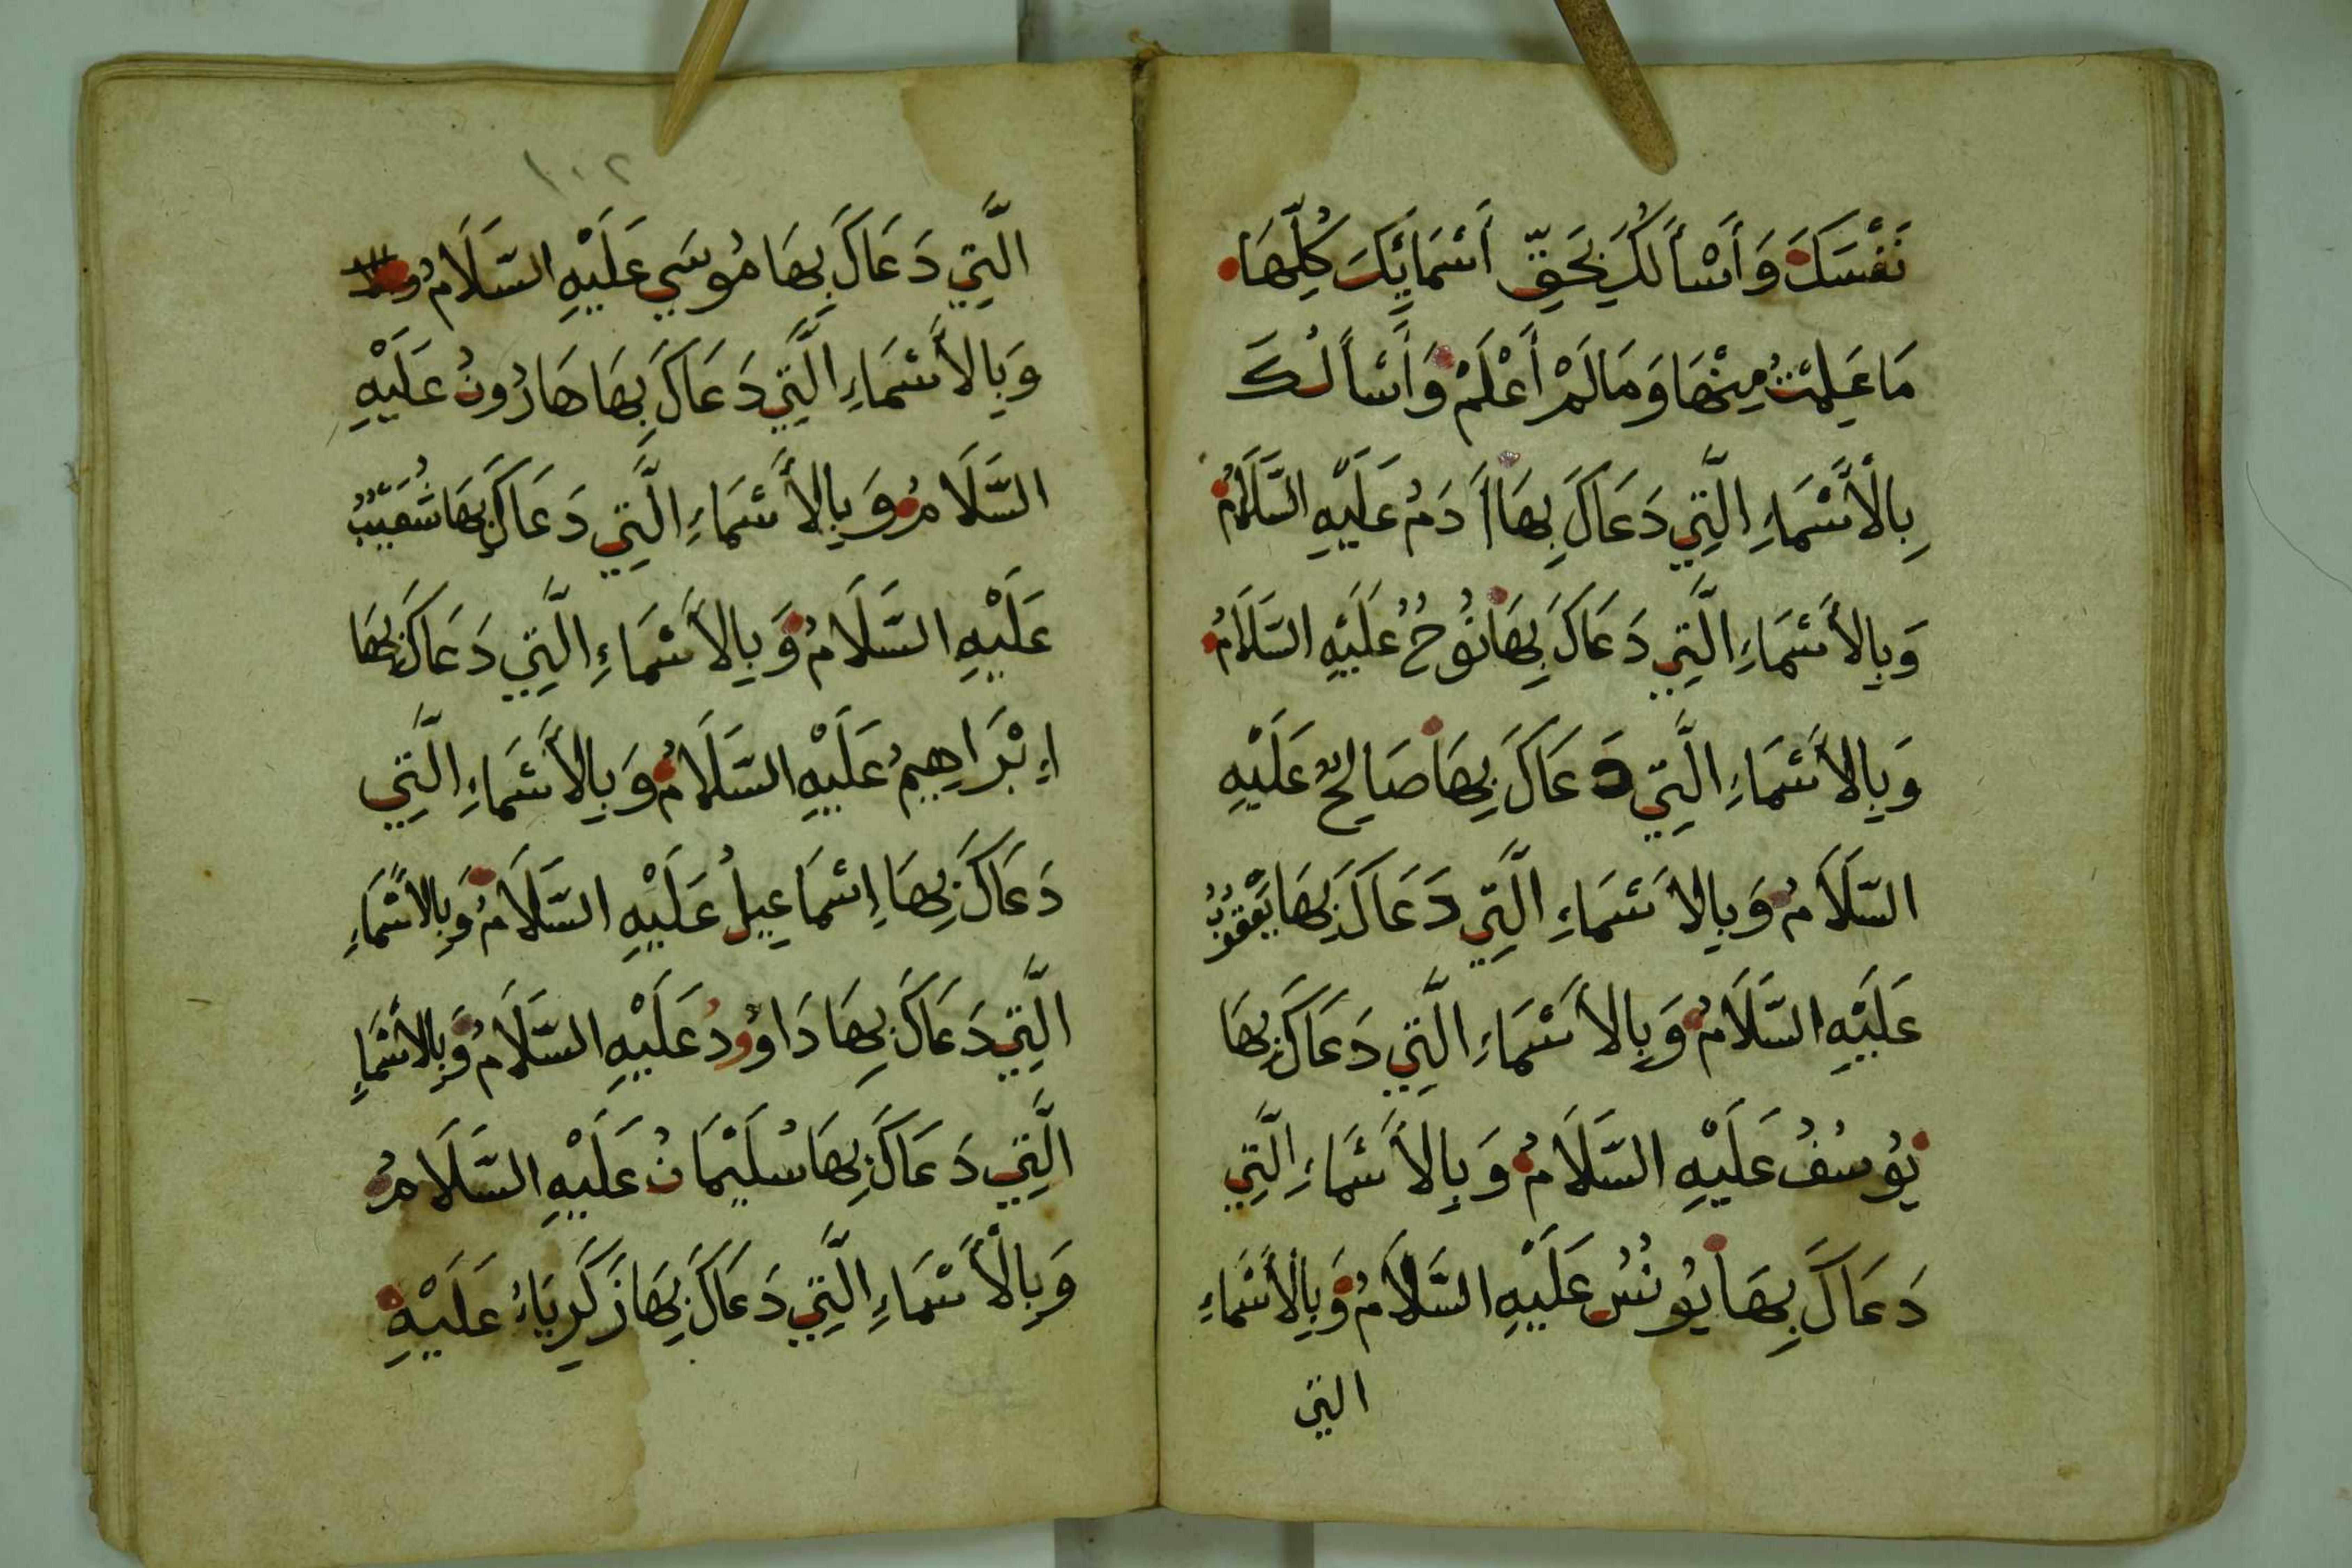 نَفْسَكَ وَأَسْأَلُكَ بِحَقِّ أَسْمَائِكَ كُلِّهَا
مَا عَلِمْتُ مِنْهَا وَمَا لَمْ أَعْلَمْ وَأَسْأَلُكَ
بِالْأَسْمَاءِ الَّتِي دَعَاكَ بِهَا اَدَمُ عَلَيْهِ السَّلَامُ
وَبِالأَسْمَاءِ الَّتِي دَعَاكَ بِهَا نُوحُ عَلَيْهِ السَّلَامُ
وَبِالأَسْمَاءِ الَّتِي دَعَاكَ بِهَا صَالِحٌ عَلَيْهِ
السَّلَامُ وَبِالأَسْمَاءِ الَّتِي دَعَاكَ بِهَا يَعْقُوبُ
عَلَيْهِ السَّلَامُ وَبِالأَسْمَاءِ الَّتِي دَعَاكَ بِهَا
يُوسُفُ عَلَيْهِ السَّلَامُ وَبِالأَسْمَاءِ الَّتِي
دَعَاكَ بِهَا يُونُسُ عَلَيْهِ السَّلَامُ وَبِالْأَسْمَاءِ
التي
١٠٢
الَّتِي دَعَاكَ بِهَا مُوسَي عَلَيْهِ السَّلَامُ
وَبِالأَسْمَاءِ الَّتِي دَعَاكَ بِهَا هَارُونُ عَلَيْهِ
السَّلَامُ وَبِالأَسْمَاءِ الَّتِي دَعَاكَ بِهَا شُعَيْبُ
عَلَيْهِ السَّلَامُ وَبِالأَسْمَاءِ الَّتِي دَعَاكَ بِهَا
إِبْرَاهِيمُ عَلَيْهِ السَّلَامُ وَبِالأَسْمَاءِ الَّتِي
دَعَاكَ بِهَا إِسْمَاعِيلُ عَلَيْهِ السَّلَامُ وَبِالأَسْمَاءِ
الَّتِي دَعَاكَ بِهَا دَاوُودُ عَلَيْهِ السَّلَامُ وَبِالأَسْمَاءِ
الَّتِي دَعَاكَ بِهَا سُلَيْمَانُ عَلَيْهِ السَّلَامُ
وَبِالْأَسْمَاءِ الَّتِي دَعَاكَ بِهَا زَكَرِيَاءُ عَلَيْهِ